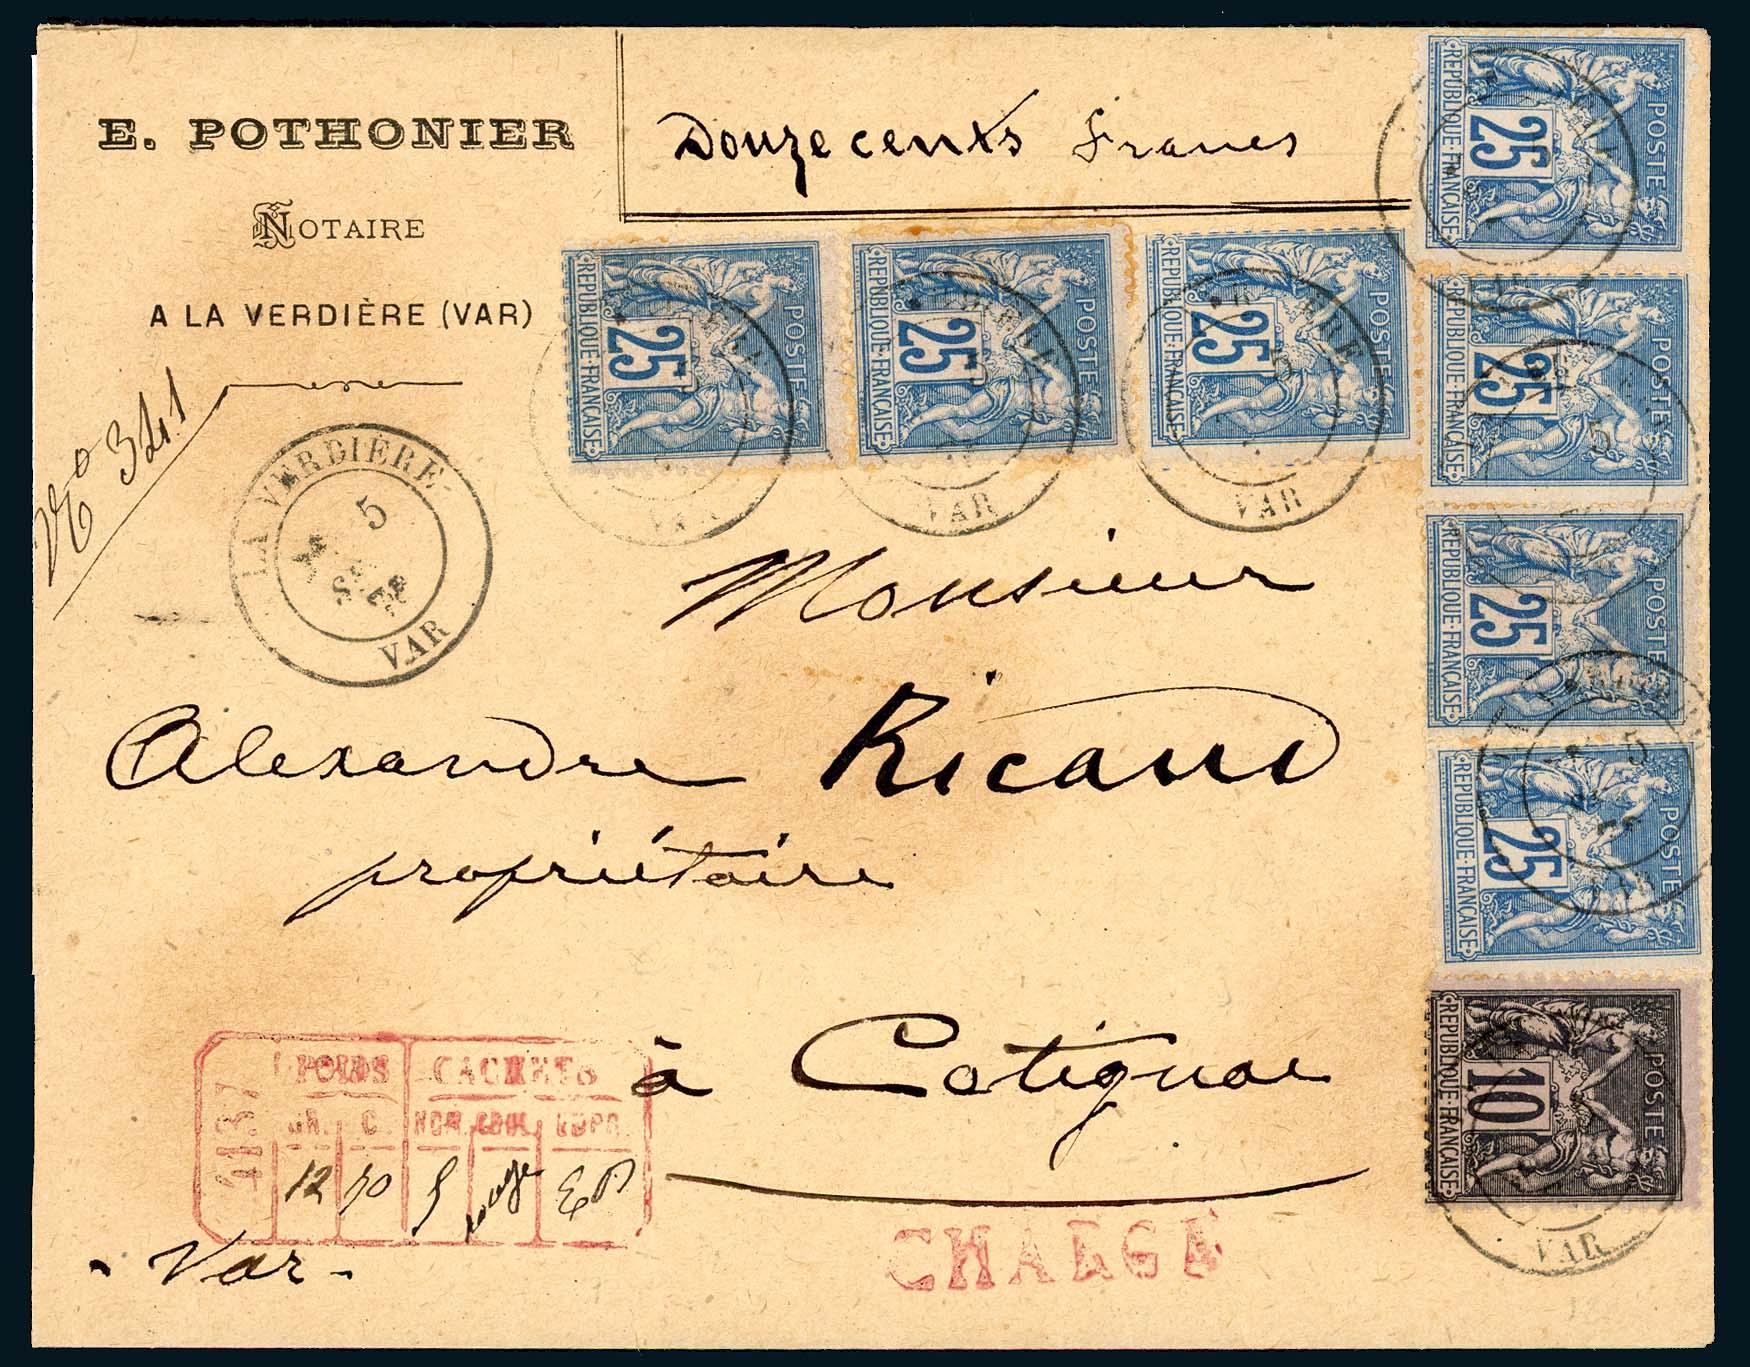 E. POTHONIER
NOTAIRE
A LA VERDIÈRE (VAR)
Douze cents francs
No 341
LA VERDIÈRE
5
VAR
POSTE
25
REPUBLIQUE FRANÇAISE
VAR
POSTE
25
REPUBLIQUE FRANÇAISE
VAR
POSTE
25
REPUBLIQUE FRANÇAISE
5
VAR
POSTE
25
REPUBLIQUE FRANÇAISE
POSTE
25
REPUBLIQUE FRANÇAISE
5
POSTE
25
REPUBLIQUE FRANÇAISE
POSTE
25
REPUBLIQUE FRANÇAISE
5
POSTE
10
REPUBLIQUE FRANÇAISE
VAR
Monsieur
Alexandre Ricaud
propriétaire
à Cotignac
Var
POIDS CACHETS
GR. C. NOM. COUL. EMPR.
12 70 5 rouge
CHARGÉ